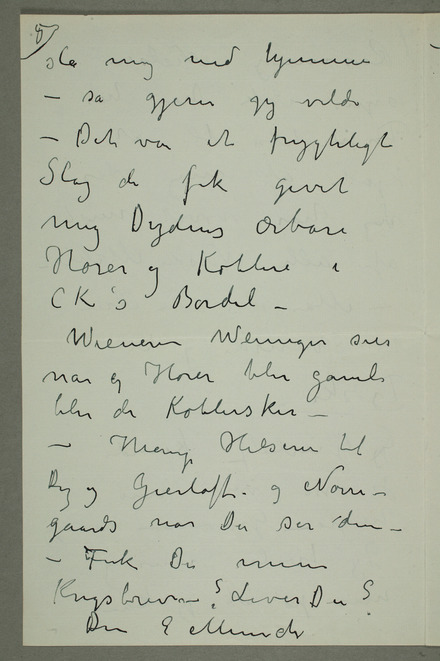 5)
slå mig ned hjemme
– så gjerne jeg vilde
– Det var et frygteligt
Slag de fik givet
mig Dydens ærbare
Horer og Koblere i
CK's Bordel –
Wieneren Weininger sier
når en Hore blir gamle
blir de Koblersker –
– Mange Hilsener til
Dig og Gierløff. og Nørre-
gaards når Du ser dem –
– Fik Du mine
Krigsbreve – ? Lever Du ?
Din E Munch